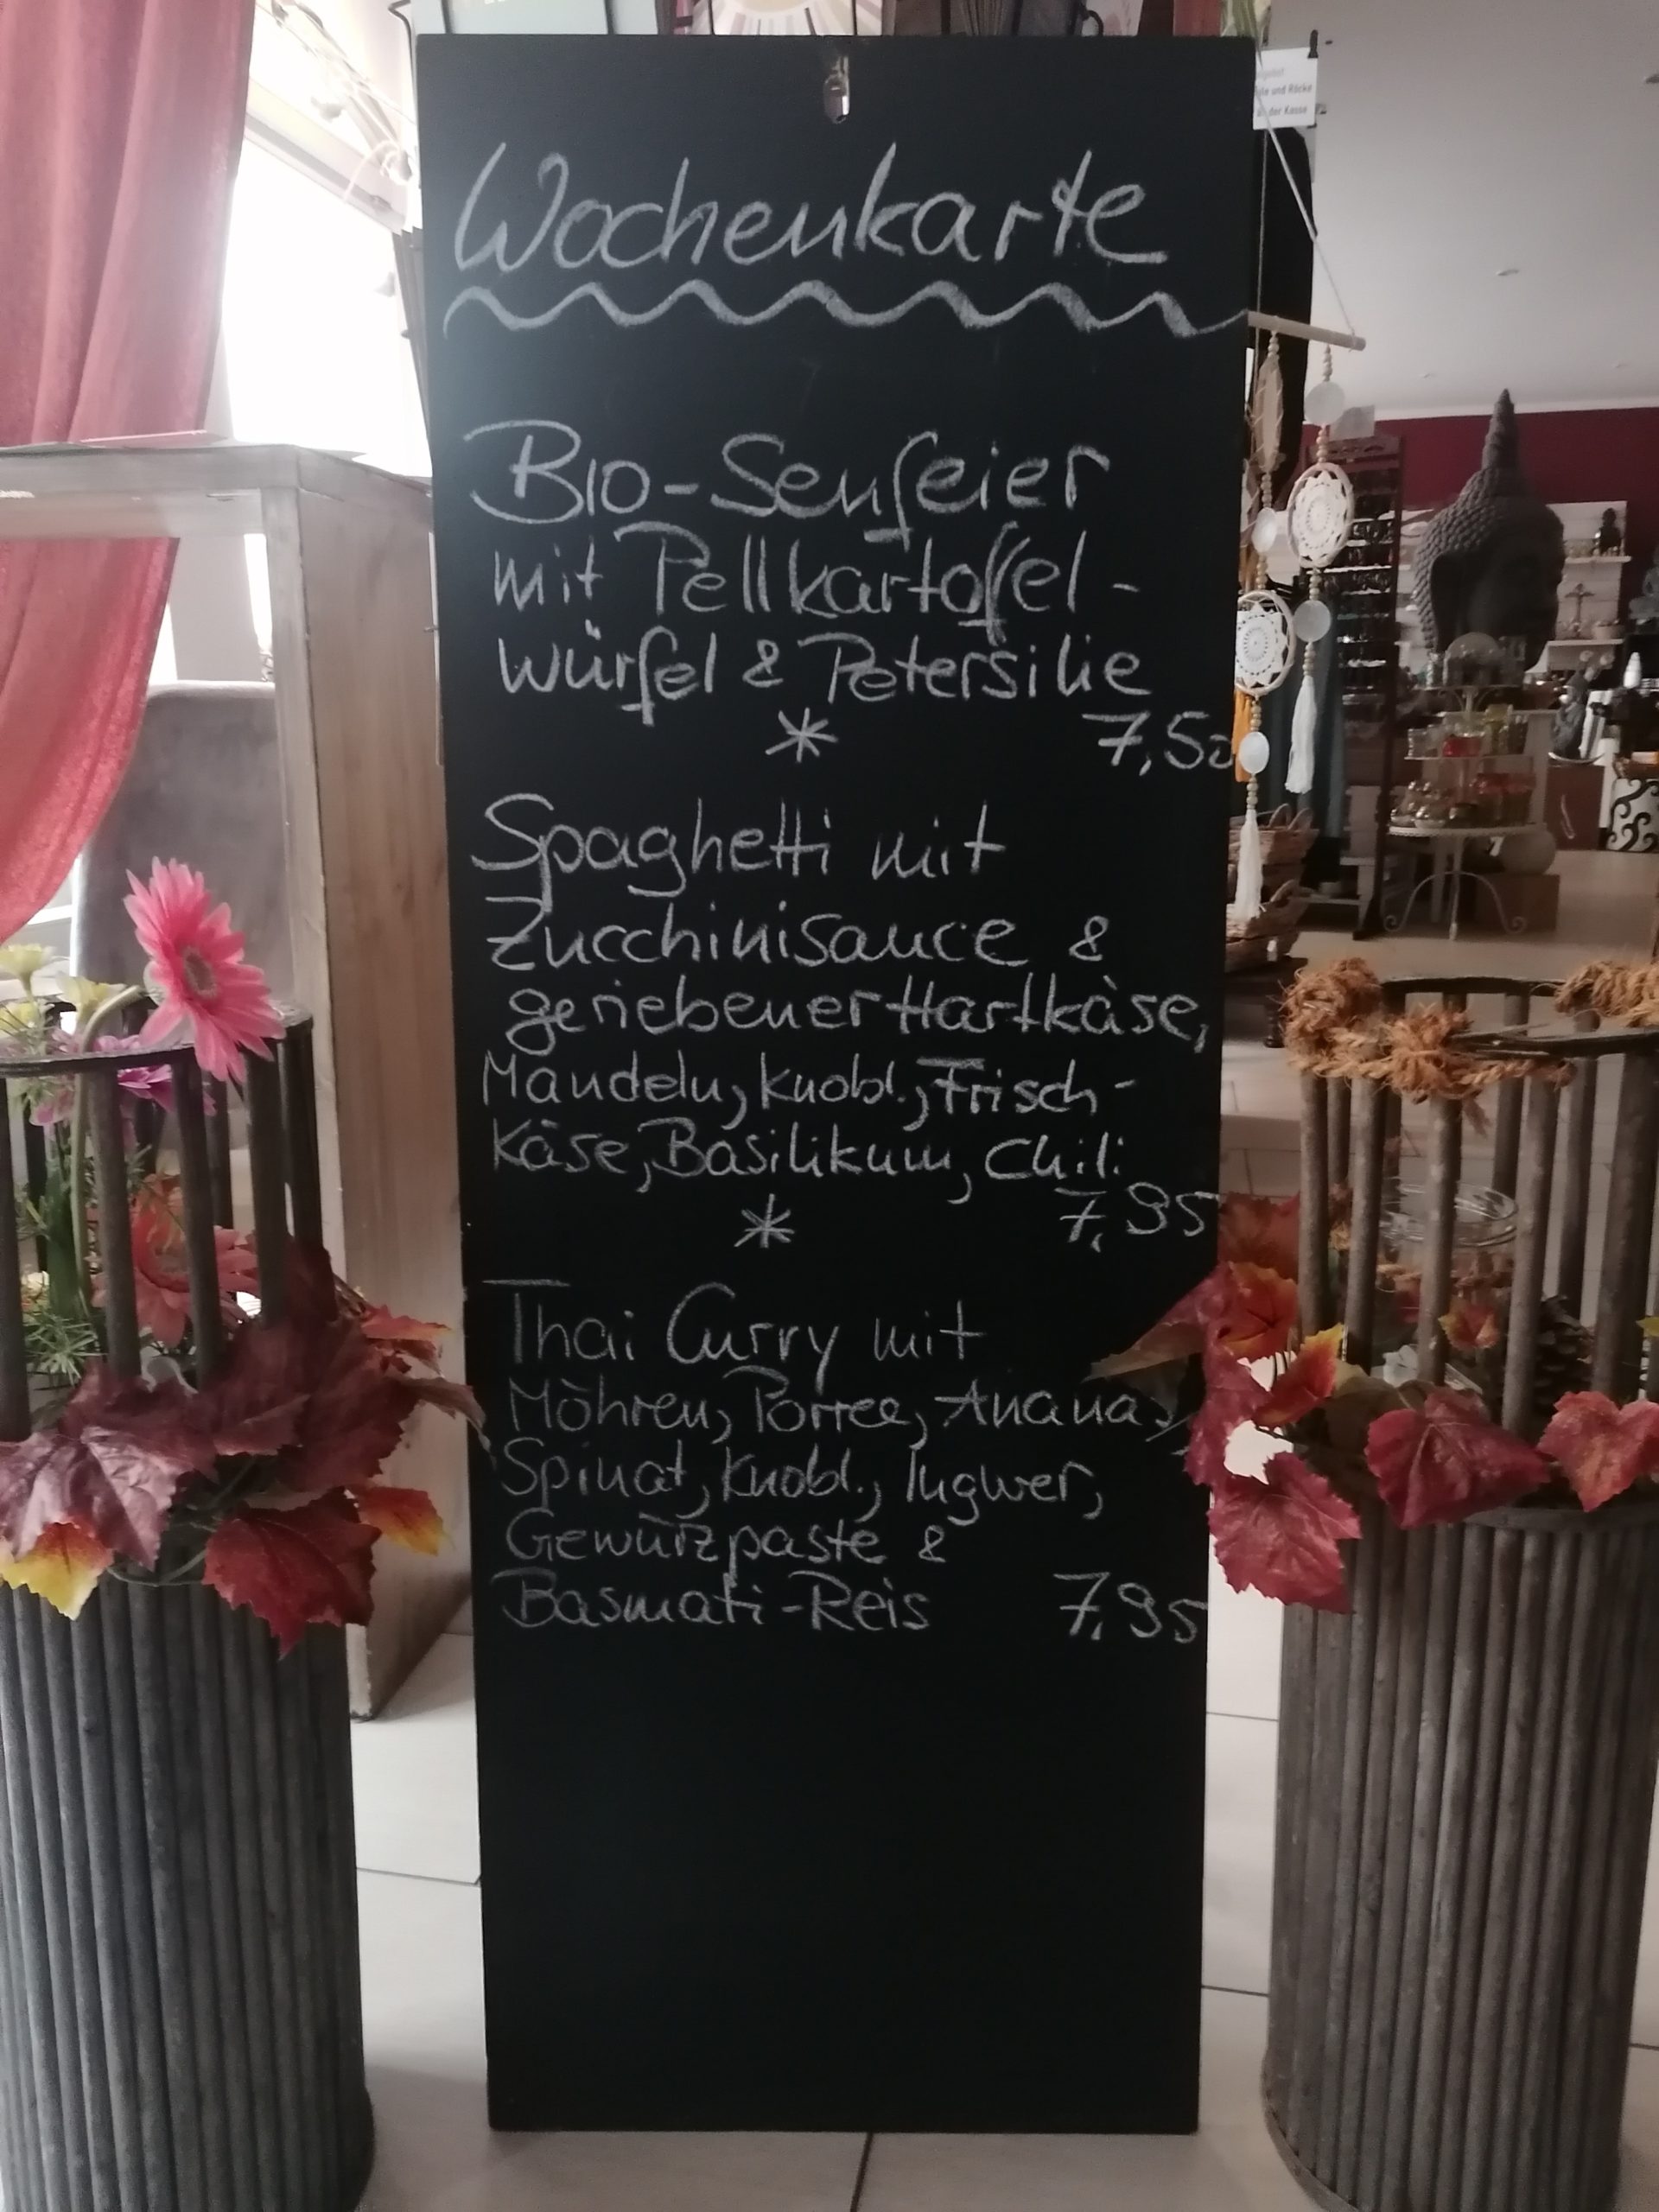 Wochenkarte
Bio-Senfeier
mit Pellkartoffel-
würfel & Petersilie
* 7,50
Spaghetti mit
Zucchinisauce &
geriebener Hartkäse,
Mandeln, Knobl., Frisch-
Käse, Basilikum, Chili
* 7,95
Thai Curry mit
Möhren, Porree, Ananas,
Spinat, Knobl., Ingwer,
Gewürzpaste &
Basmati-Reis 7,95
und Röcke
der Kasse